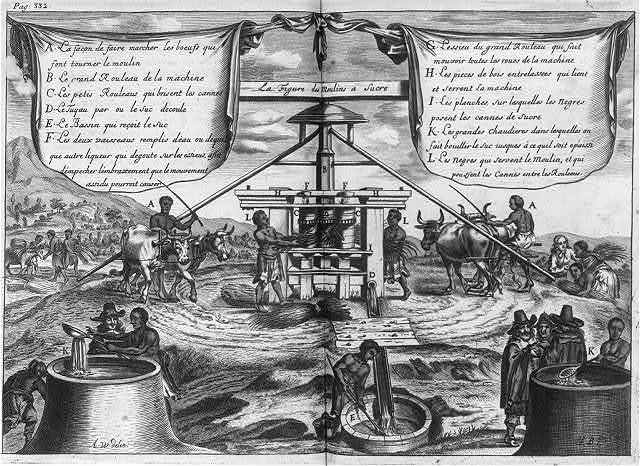 Pag. 332
A · La façon de faire marcher les boeufs qui
font tourner le moulin
B · Le grand Rouleau de la machine
C · Les petis Rouleaus qui brisent les cannes
D · Le tuyau par ou le suc decoule
E · Le Bassin qui reçoit le suc
F · Les deux vaisseaus remplis d'eau ou de
que autre liqueur qui degoute sur les afin
d'empecher l'embrazement que le mouvement
assidu pourroit causer
La Figure des Moulins à Sucre
G · L'essieu du grand Rouleau qui fait
mouvoir toutes les roues de la machine
H · Les pieces de bois entrelassees qui lient
et serrent la machine
I · Les planches sur lesquelles les Negres
posent les cannes de sucre
K · Les grandes Chaudieres dans lesquelles on
fait bouiller le suc jusques à ce qu'il soit epaissi
L · Les Negres qui servent le Moulin, et qui
poussent les Cannes entre les Rouleaus.
B
F F
A
L
C C
L
A
I
D
K
E
K
A. W. delin.